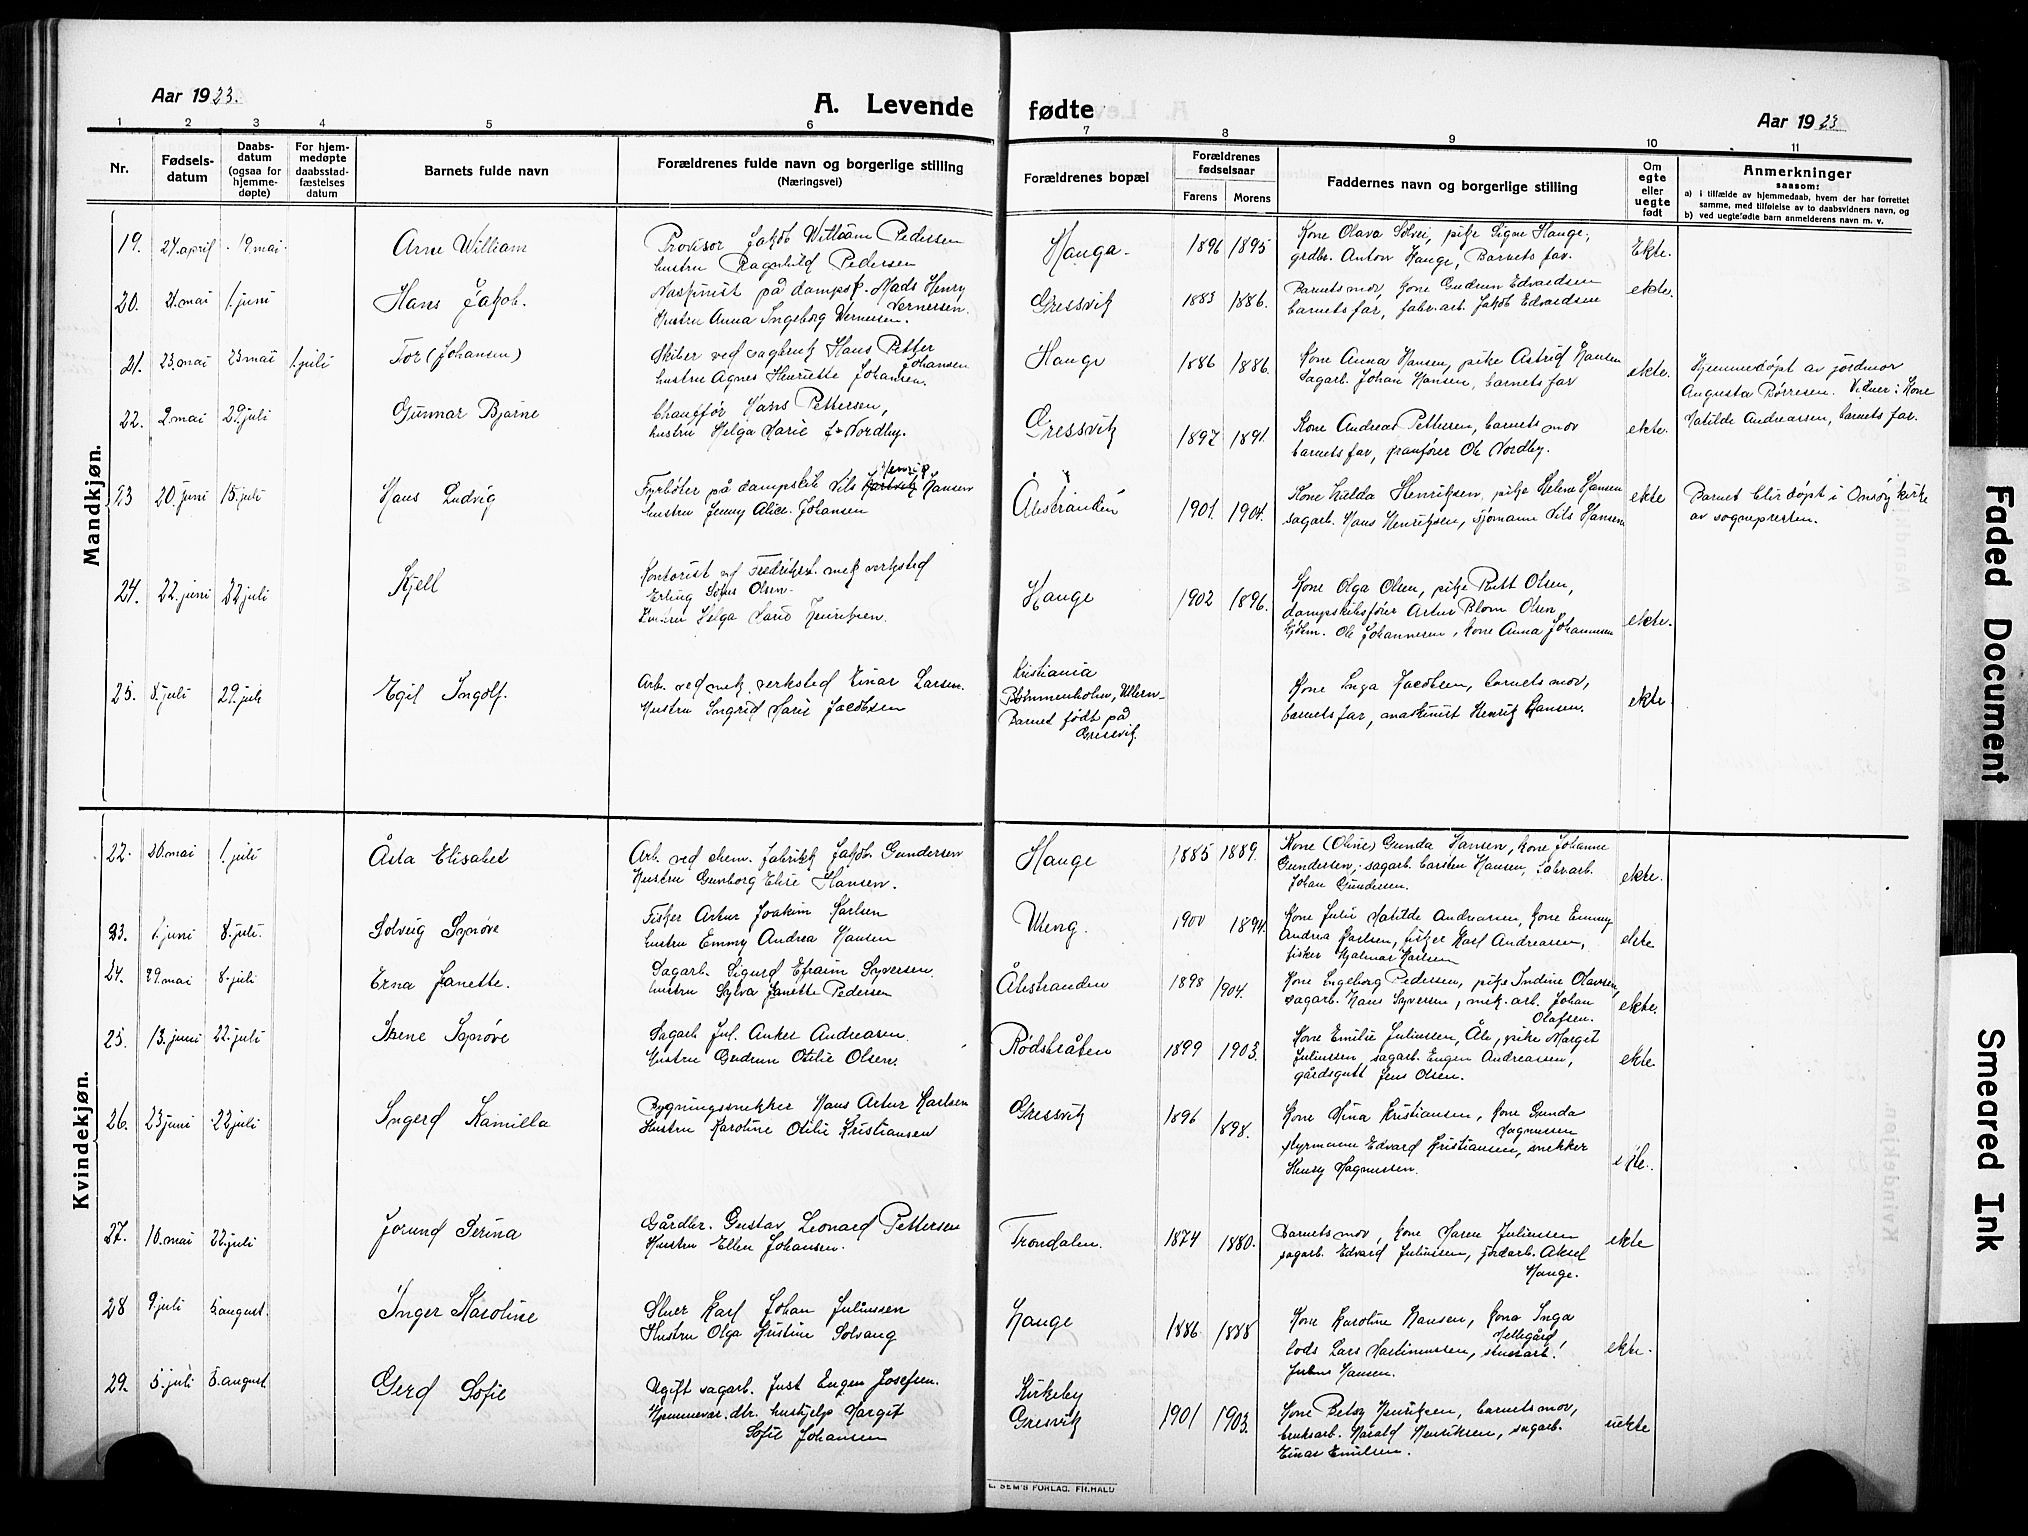 Aar 1923.
A. Levende fødte
Aar 1923
1 2 3 4 5 6 7 8 9 10 11
Nr.
Fødsels-
datum
Daabs-
datum
(ogsaa for
hjemme-
døpte)
For hjem-
medøpte
daabsstad-
fæstelses
datum
Barnets fulde navn
Forældrenes fulde navn og borgerlige stilling
(Næringsvei)
Forældrenes bopæl
Forældrenes
fødselsaar
Farens Morens
Faddernes navn og borgerlige stilling
Om
egte
eller
uegte
født
Anmerkninger
saasom:
a) i tilfælde av hjemmedaab, hvem der har forrettet
samme, med tilføielse av to daabsvidners navn, og
b) ved uegtefødte barn anmelderens navn m. v.
Mandkjøn.
19. 24. april 19. mai Arne William
Provisor Jakob William Pedersen
hustru Ragnhild Pedersen
Hauge 1896 1895
Kone Olava Solvei, pike Signe Hauge,
grdbr. Anton Hauge, Barnets far.
Ekte.
20. 4. mai 1. juni Hans Jakob.
Maskinist på dampsk. Mads Henry
Wernersen.
Hustru Anna Ingeborg Wernersen.
Gressvik 1883 1886.
Barnets mor, kone Gudrun Edvardsen
barnets far, fabr.arb. Jakob Edvardsen
ekte.
21. 23. mai 23 mai 1. juli Tor (Johansen)
Skiber ved sagbruk Hans Petter
Johansen
hustru Agnes Henriette Johansen.
Hauge 1886 1886.
Kone Anna Hansen, pike Astrid Hansen
Sagarb. Johan Hansen, barnets far
ekte.
Hjemmedøpt av jordmor
Augusta Børresen. Vidner: Kone
Matilde Andreassen, barnets far.
22. 2. mai 29. juli Gunnar Bjarne
Chauffør Hans Pettersen,
hustru Helga Marie f. Nordby.
Gressvik 1897 1891.
Kone Andrea Pettersen, barnets mor
barnets far, pramfører Ole Nordby.
ekte.
23 20. juni 15. juli Hans Ludvig
Henrik
Fyrbøter på dampskib Nils Hansen
hustru Jenny Alice Johansen
Ålestranden 1901. 1904.
Kone Halda Henriksen, pike Helene Hansen
sagarb. Hans Henriksen, sjømann Nils Hansen
ekte
Barnet blir døpt i Onsøy kirke
av sognepresten.
24. 22. juni 22 juli Kjell
Kontorist ved Fredrikst. mek verksted
Erling Sofus Olsen
Hustru Helga Marie Henriksen.
Hauge 1902 1896.
Kone Olga Olsen, pike Rutt Olsen,
dampskibsfører Artur Blom Olsen
kjøbm. Ole Johannesen, kone Anna Johannesen
ekte.
25. 8. juli 29. juli Egil Ingolf.
Arb. ved mek. verksted Einar Larsen.
Hustru Ingrid Marie Jacobsen
Kristiania
Bømmenholm, Ullern
Barnet født på
Gressvik.
Kone Inga Jacobsen, barnets mor,
barnets far, maskinist Henrik Hansen.
ekte.
Kvindekjøn.
22. 20. mai 1. juli Åsta Elisabet
Arb. ved chem. fabrikk Jakob Gundersen
Hustru Gunborg Elise Hansen.
Hauge 1885 1889.
Kone (Oline) Gunda Hansen, kone Johanne
Gundersen, sagarb. Carsten Hansen, Fabr.arb.
Johan Gundersen.
ekte.
23. 1. juni 8. juli. Solveig Synøve
Fisker Artur Joakim Karlsen
hustru Emmy Andrea Hansen
Uteng. 1900 1894.
Kone Julie Matilde Andreassen, kone Emmy
Andrea Karlsen, fisker Karl Andreasen,
fisker Hjalmar Karlsen
ekte
24. 29. mai 8. juli Erna Janette.
Sagarb. Sigurd Efraim Syversen.
hustru Sylva Janette Pedersen
Ålestranden 1898 1904.
Kone Ingeborg Pedersen, pike Indine Olavsen,
sagarb. Hans Syversen, mek. arb. Johan
Olafsen.
ekte.
25. 13. juni 22. juli Irene Synøve
Sagarb. Jul. Anker Andreasen.
Hustru Gudrun Otilie Olsen
Rødsbråten 1899 1903.
Kone Emilie Juliussen, Åle, pike Margit
Juliussen, sagarb. Eugen Andreassen,
gårdsgutt Jens Olsen.
ekte.
26. 23 juni 22 juli Ingerd Kamilla
Bygningssnekker Hans Artur Karlsen
Hustru Karoline Otilie Kristiansen
Gressvik 1896 1898.
Kone Mina Kristiansen, kone Gunda
Magnussen
styrmann Edvard Kristiansen, snekker
Henry Magnussen.
ekte.
27. 10. mai 22. juli Jorund Perina
Gårdbr. Gustav Leonard Pettersen
Hustru Ellen Johansen.
Trondalen. 1874 1880.
Barnets mor, kone Maren Juliussen
sagarb. Edvard Juliussen, jordarb. Aksel
Hauge.
ekte
28 9. juli 5 august. Inger Karoline
Stuer Karl Johan Juliussen
Hustru Olga Kristine Solvang
Hauge 1886 1888
Kone Karoline Hansen, kone Inga
Hellegård
Lods Lars Martinussen, stuerarb.
Julius Hansen.
ekte.
29. 5. juli 5. august Gerd Sofie
Ugift sagarb. Just Eugen Josefsen.
Hjemmevær. dtr. hushjelp Margit
Sofie Johansen
Kirkeby
Gresvik 1901 1903.
Kone Betsy Henriksen, barnets mor,
bruksarb. Harald Henriksen, sagarb.
Einar Emilsen.
uekte
E. SEM'S FORLAG. FR.HALD
Faded Document
Smeared Ink